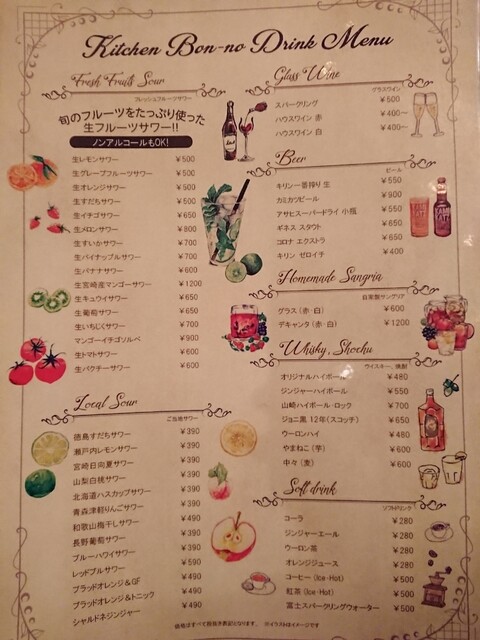 Kitchen Bon-no Drink Menu
Fresh Fruits Sour
フレッシュフルーツサワー
旬のフルーツをたっぷり使った
生フルーツサワー!!
ノンアルコールもOK!
生レモンサワー ¥500
生グレープフルーツサワー ¥500
生オレンジサワー ¥500
生すだちサワー ¥500
生イチゴサワー ¥650
生メロンサワー ¥800
生すいかサワー ¥700
生パイナップルサワー ¥700
生バナナサワー ¥600
生宮崎産マンゴーサワー ¥1200
生キュウイサワー ¥650
生葡萄サワー ¥650
生いちじくサワー ¥700
マンゴーイチゴソルベ ¥900
生トマトサワー ¥600
生パクチーサワー ¥600
Local Sour
ご当地サワー
徳島すだちサワー ¥390
瀬戸内レモンサワー ¥390
宮崎日向夏サワー ¥390
山梨白桃サワー ¥390
北海道ハスカップサワー ¥390
青森津軽りんごサワー ¥390
和歌山梅干しサワー ¥490
長野葡萄サワー ¥390
ブルーハワイサワー ¥390
レッドブルサワー ¥590
ブラッドオレンジ&GF ¥490
ブラッドオレンジ&トニック ¥490
シャルドネジンジャー ¥490
Glass Wine
グラスワイン
スパークリング ¥500
ハウスワイン 赤 ¥400~
ハウスワイン 白 ¥400~
Beer
ビール
キリン一番搾り 生 ¥550
カミカツビール ¥900
アサヒスーパードライ 小瓶 ¥550
ギネス スタウト ¥650
コロナ エクストラ ¥650
キリン ゼロイチ ¥400
Homemade Sangria
自家製サングリア
グラス (赤・白) ¥600
デキャンタ (赤・白) ¥1200
Whisky, Shochu
ウイスキー、焼酎
オリジナルハイボール ¥480
ジンジャーハイボール ¥550
山崎ハイボール・ロック ¥700
ジョニ黒 12年(スコッチ) ¥650
ウーロンハイ ¥480
やまねこ (芋) ¥600
中々 (麦) ¥600
Soft drink
ソフトドリンク
コーラ ¥280
ジンジャーエール ¥280
ウーロン茶 ¥280
オレンジジュース ¥280
コーヒー (Ice・Hot) ¥500
紅茶 (Ice・Hot) ¥500
富士スパークリングウォーター ¥500
価格はすべて税抜き表記になります。 ※イラストはイメージです